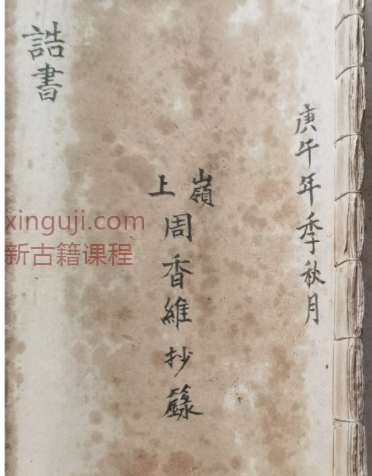 庚午年季秋月
嶺上周香維抄錄
誥書
xinguji.com
新古籍课程